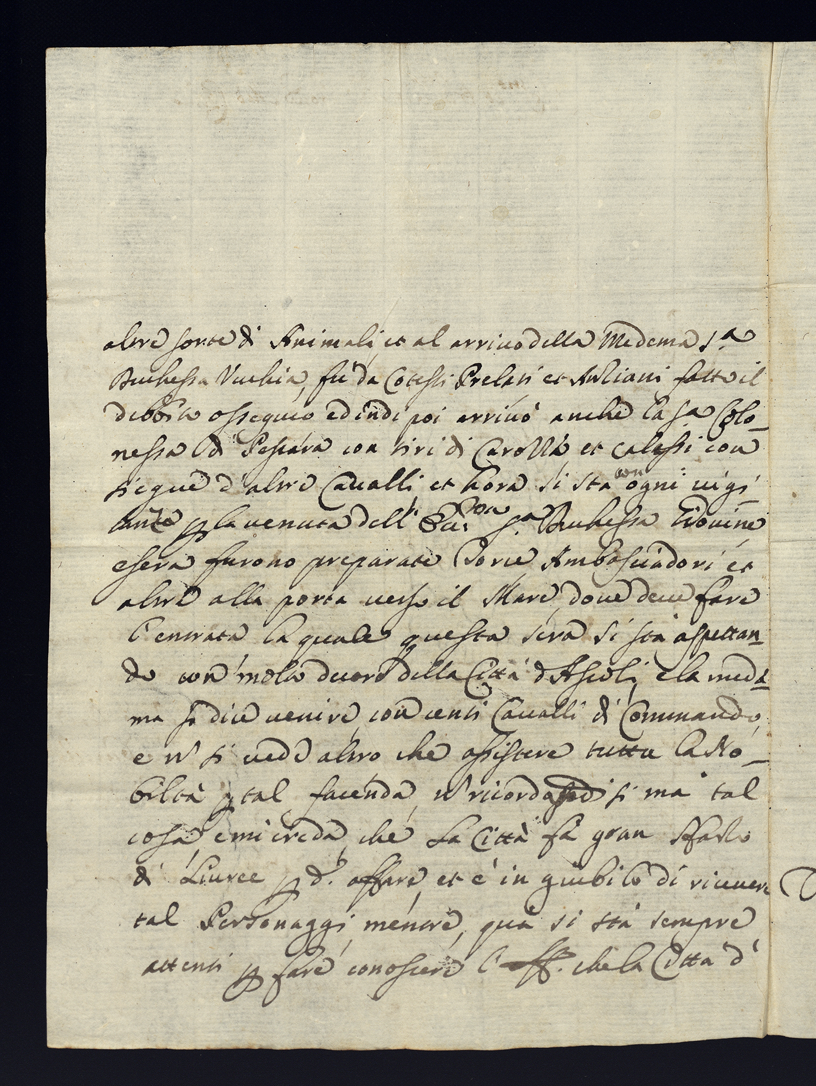 altre sorte di Animali, et al arrivo della Medema S.ra
Duchessa Vecchia, fù da Cotesti Prelati et Anziani fatto il
debbito osseguio ed indi poi arrivò anche la S.ra Colo-
nessa di Pescara con tiri di Carozza et calessi con
seque d'altri Cavalli et hora si stà con ogni vigi-
lanza p la venuta dell' S.ra Duchessa Giovine
e sera furono preparate Ambasciadori et
altri alla porta verso il Mare, dove deve fare
l'entrata la quale questa sera si stà aspettan-
do con molto decoro della Città d'Ascoli, e la mede-
ma si dice venire con centi Cavalli di Commando,
e n' si vede altro che assistere tutta la No-
biltà p tal facenda, n' ricordandosi mai tal
cosa, e mi creda, che la Città fa gran sfarzo
di Livree p d.o affare, et è in giubilo di ricevere
tal Personaggi, mentre, quà si stà sempre
attenti p fare conoscere l' che la Città d'